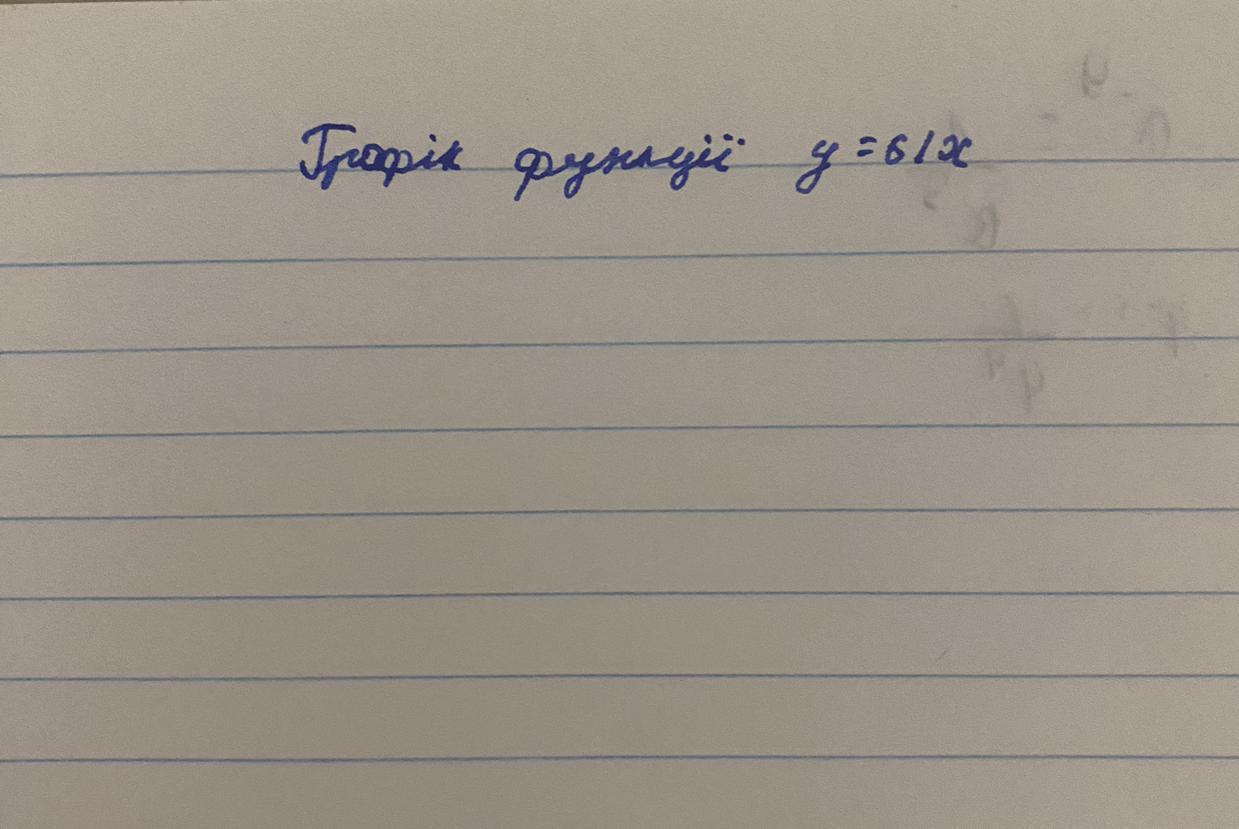 Графік функції y=6/x